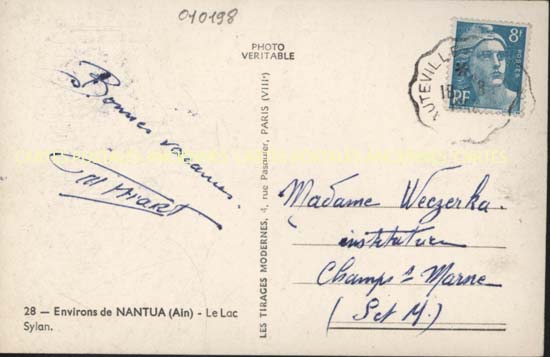 010198
PHOTO
VERITABLE
8F
POSTES
RF
HAUTEVILLE
18
Bonnes vacances.
LES TIRAGES MODERNES, 4, rue Pasquier, PARIS (VIIIe)
Madame Weczerka
institutrice
Champs s Marne
(Set M.)
28 — Environs de NANTUA (Ain) - Le Lac
Sylan.